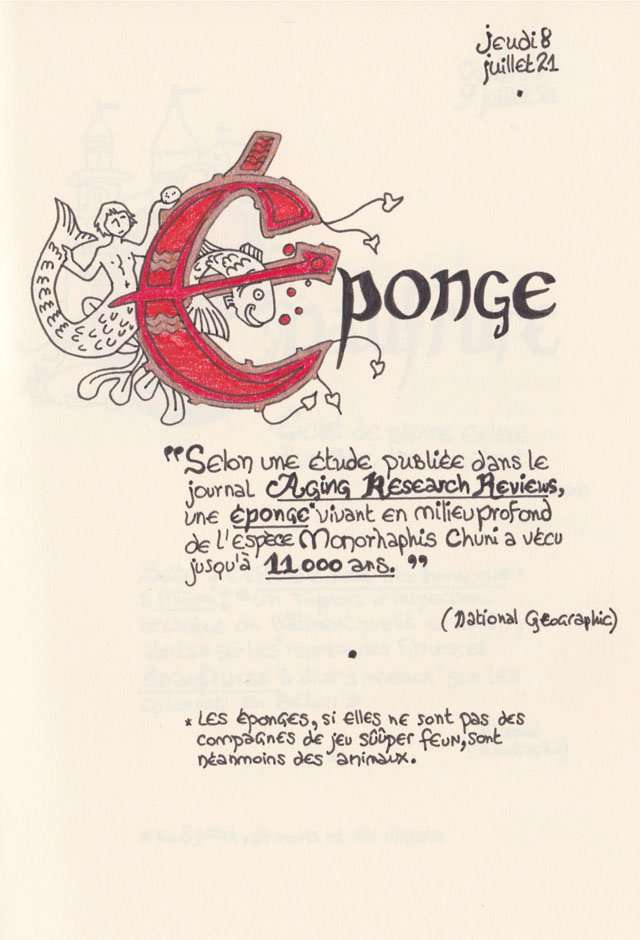 jeudi 8
juillet 21
Éponge
"Selon une étude publiée dans le
journal Aging Research Reviews,
une éponge* vivant en milieu profond
de l'espèce Monorhaphis Chuni a vécu
jusqu'à 11 000 ans."
(National Geographic)
* Les éponges, si elles ne sont pas des
compagnes de jeu sûûper feun, sont
néanmoins des animaux.